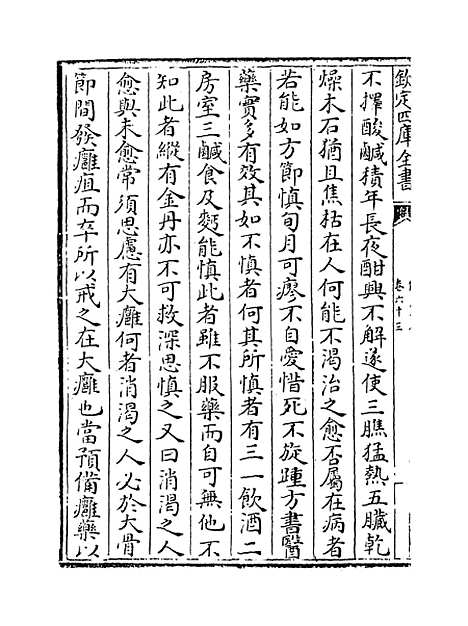 欽定四庫全書
卷六十三
不擇酸鹹積年長夜酣興不解遂使三膲猛熱五臟乾
燥木石猶且焦枯在人何能不渴治之愈否屬在病者
若能如方節慎旬月可瘳不自愛惜死不旋踵方書醫
藥實多有效其如不慎者何其所慎者有三一飲酒二
房室三鹹食及麪能慎此者雖不服藥而自可無他不
知此者縱有金丹亦不可救深思慎之又曰消渴之人
愈與未愈常須思慮有大癰何者消渴之人必於大骨
節間發癰疽而卒所以戒之在大癰也當預備癰藥以